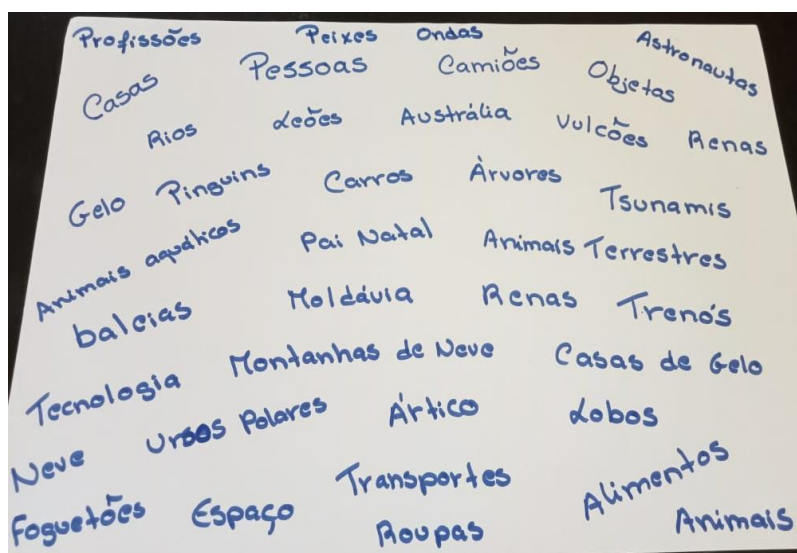 Profissões Peixes Ondas Astronautas
Casas Pessoas Camiões Objetas
Rios Leões Austrália Vulcões Renas
Gelo Pinguins Carros Àrvores Tsunamis
Animais aquáticos Pai Natal Animais Terrestres
baleias Moldávia Renas Trenós
Tecnologia Montanhas de Neve Casas de Gelo
Neve Ursos Polares Ártico Lobos
Foguetões Espaço Transportes Alimentos
Roupas Animais